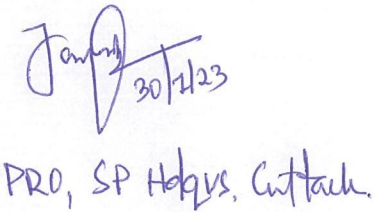 30/1/23
PRO, SP Hdqrs, Cuttack.